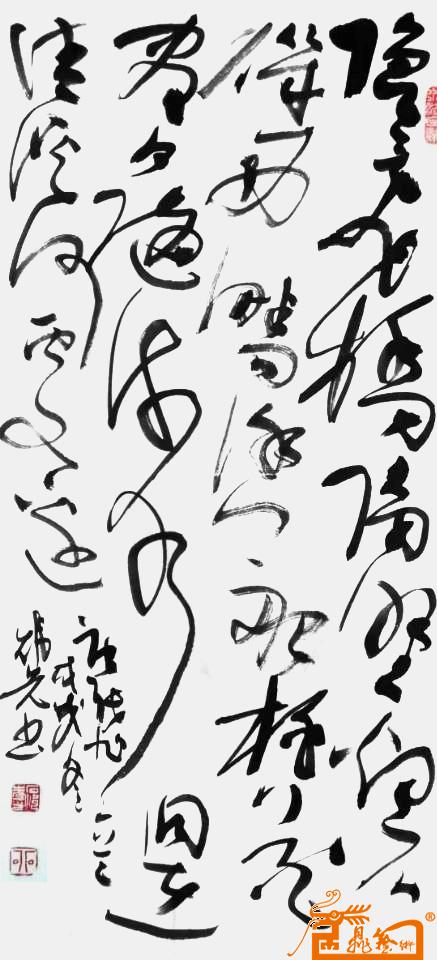 隐隐飞桥隔野烟石
矶西畔问渔船桃花
尽日随流水洞在
清溪何处边
唐张旭
戊戌冬